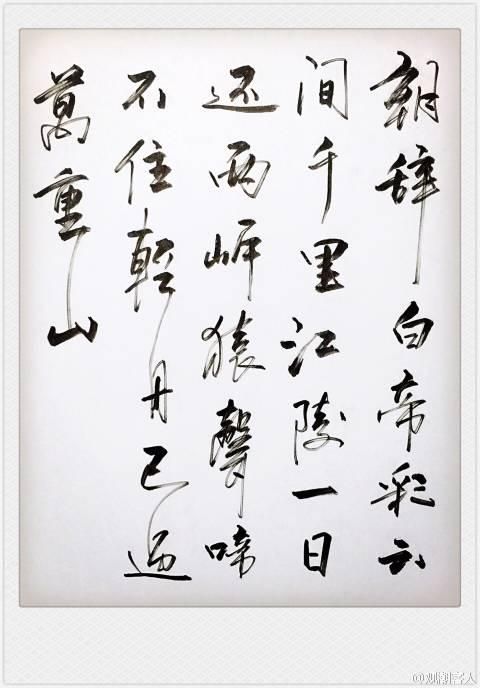 朝辞白帝彩云
间千里江陵一日
还两岸猿聲啼
不住輕舟已過
萬重山